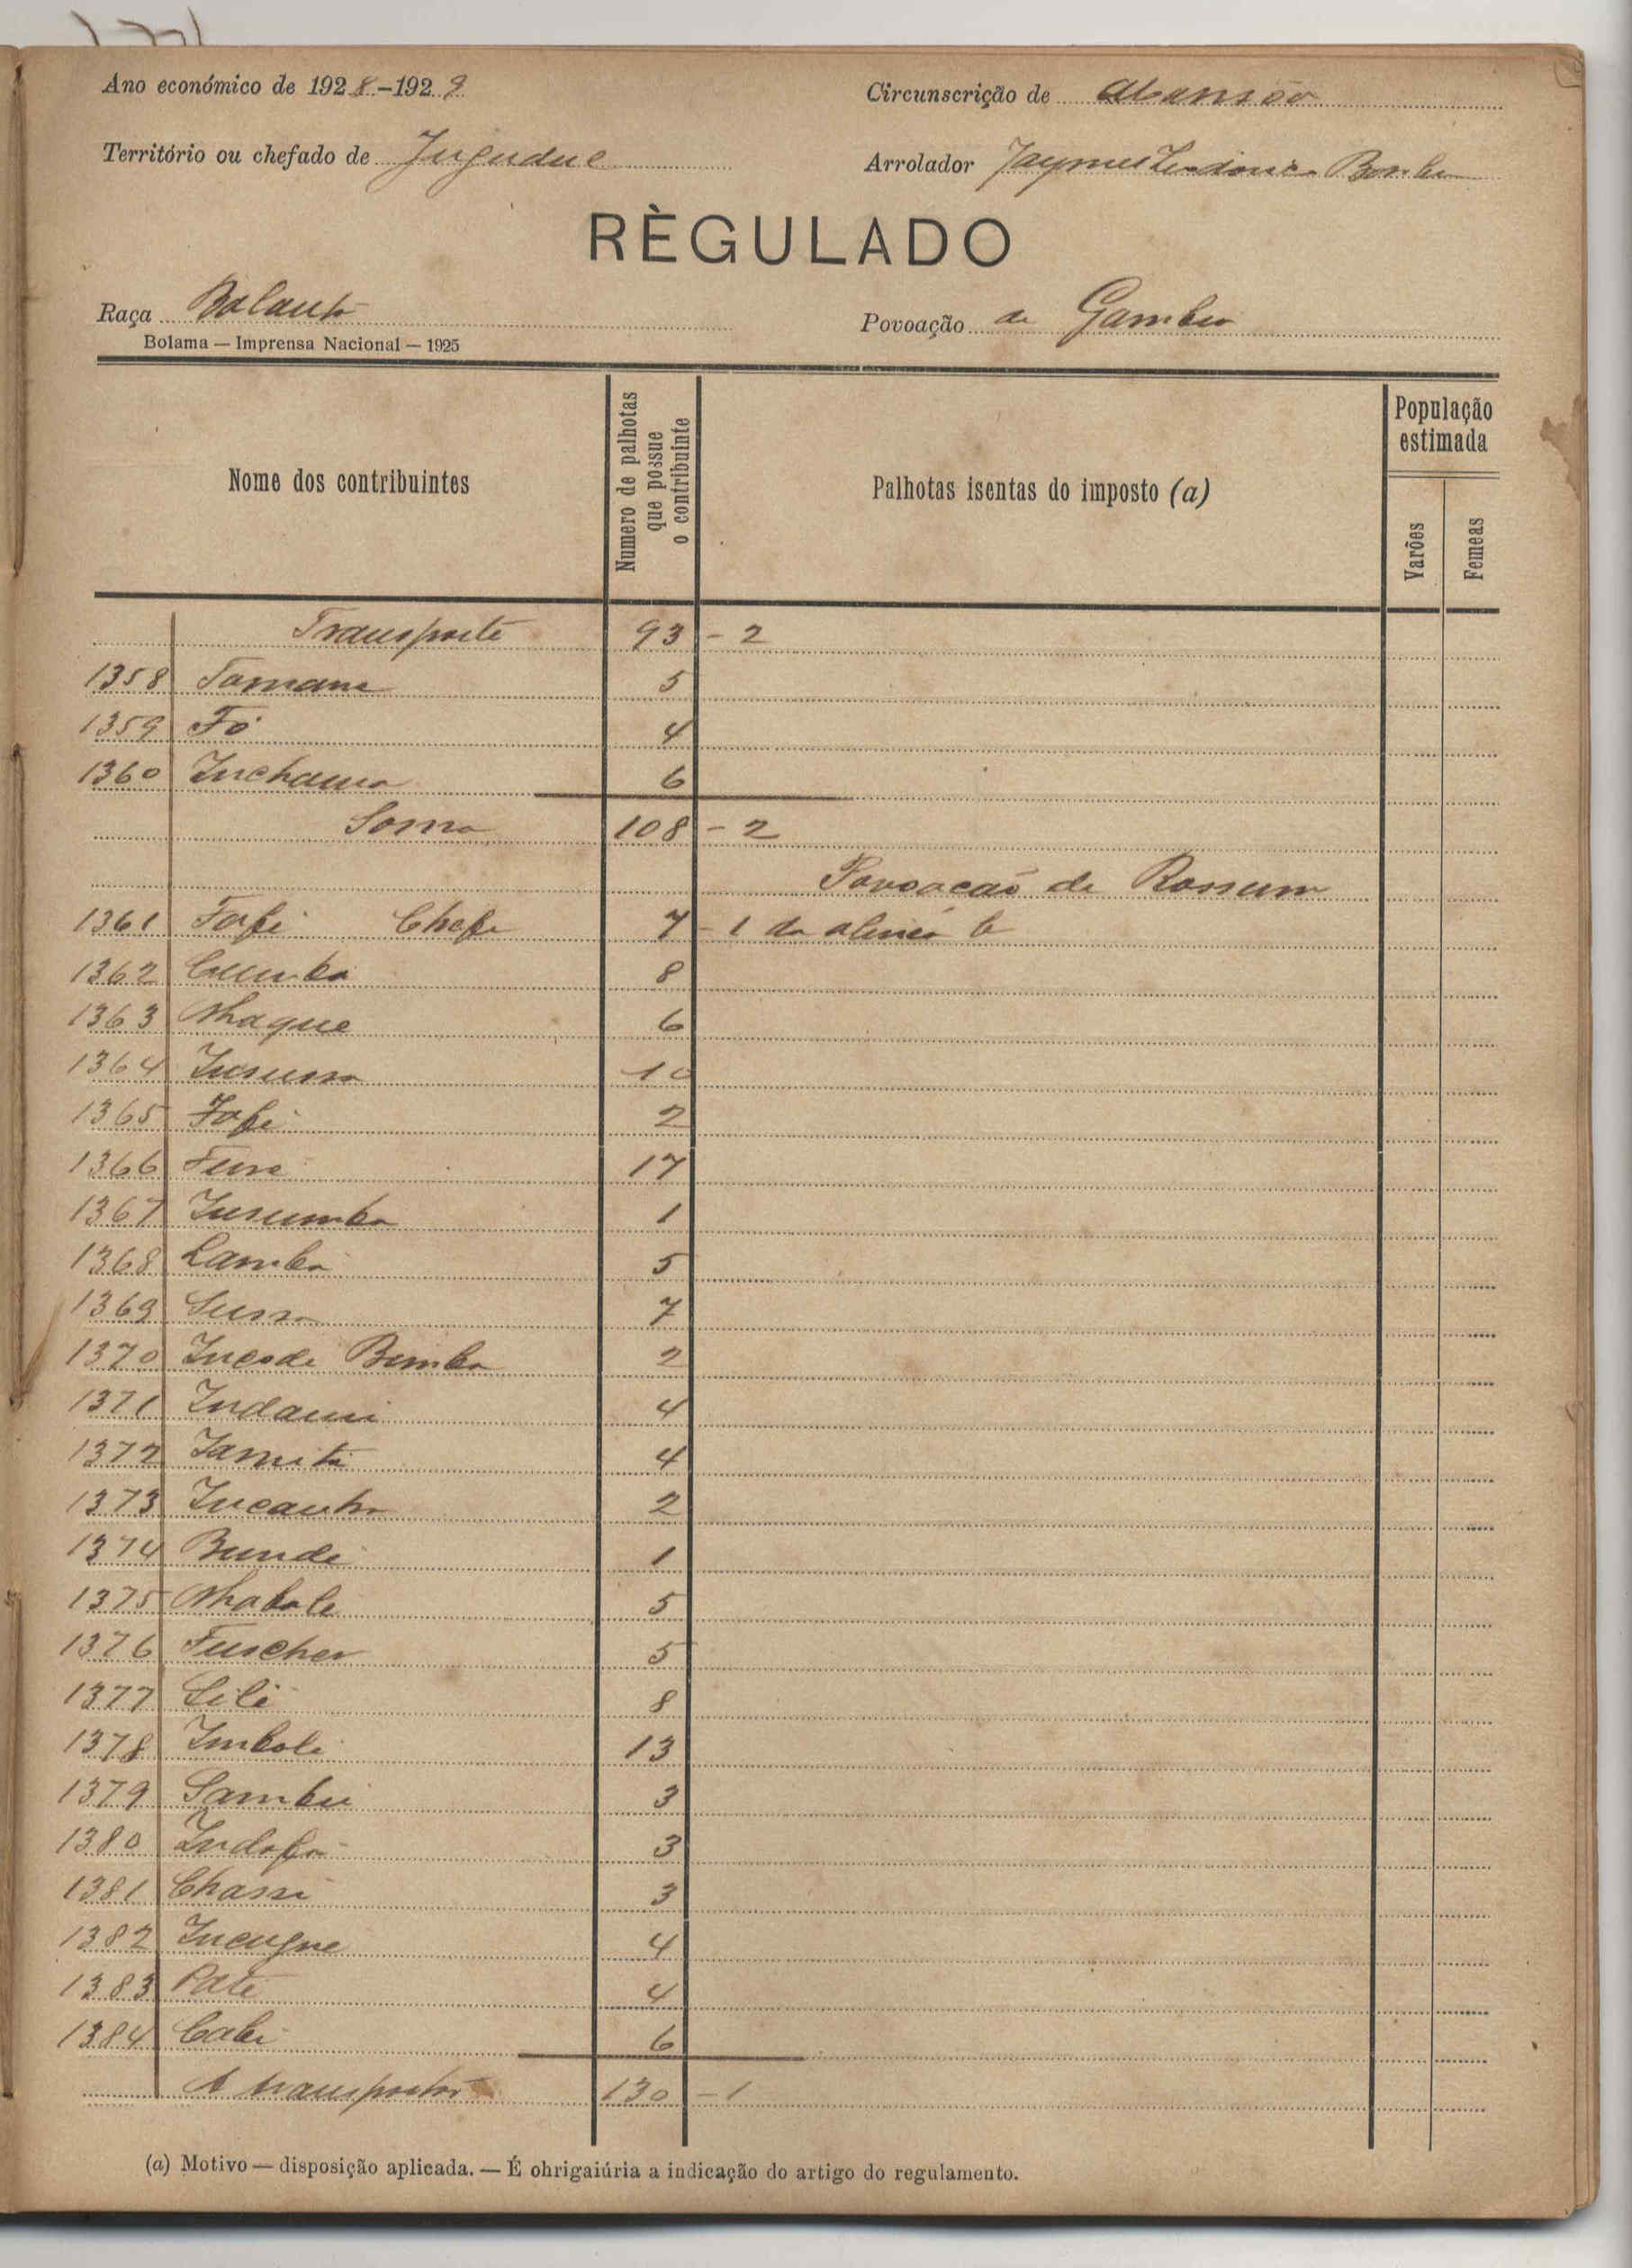 Ano económico de 1928-1929
Circunscrição de Mansôa
Território ou chefado de Jugudul
Arrolador Jayme
RÈGULADO
Raça Balanta
Povoação de Gambu
Bolama — Imprensa Nacional — 1925
Nome dos contribuintes
Numero de palhotas que possue o contribuinte
Palhotas isentas do imposto (a)
População estimada
Varões
Femeas
Transporte 93 - 2
1358 Tomane 5
1359 Fó 4
1360 Inchama 6
Soma 108 - 2
Povoação de Rossum
1361 Fafi Chefe 7 - 1 da alinea b
1362 Cumba 8
1363 Naque 6
1364 Insussa 10
1365 Fafi 2
1366 Fune 17
1367 Insumba 1
1368 Lamba 5
1369 Sussa 7
1370 Incode Bomba 2
1371 Indami 4
1372 Iamita 4
1373 Incanha 2
1374 Bunde 1
1375 Nhabale 5
1376 Fuscher 5
1377 Sili 8
1378 Imbali 13
1379 Sambu 3
1380 Indafa 3
1381 Chassi 3
1382 Incugne 4
1383 Paté 4
1384 Cabi 6
A transportar 130 - 1
(a) Motivo — disposição aplicada. — É ohrigaiúria a indicação do artigo do regulamento.